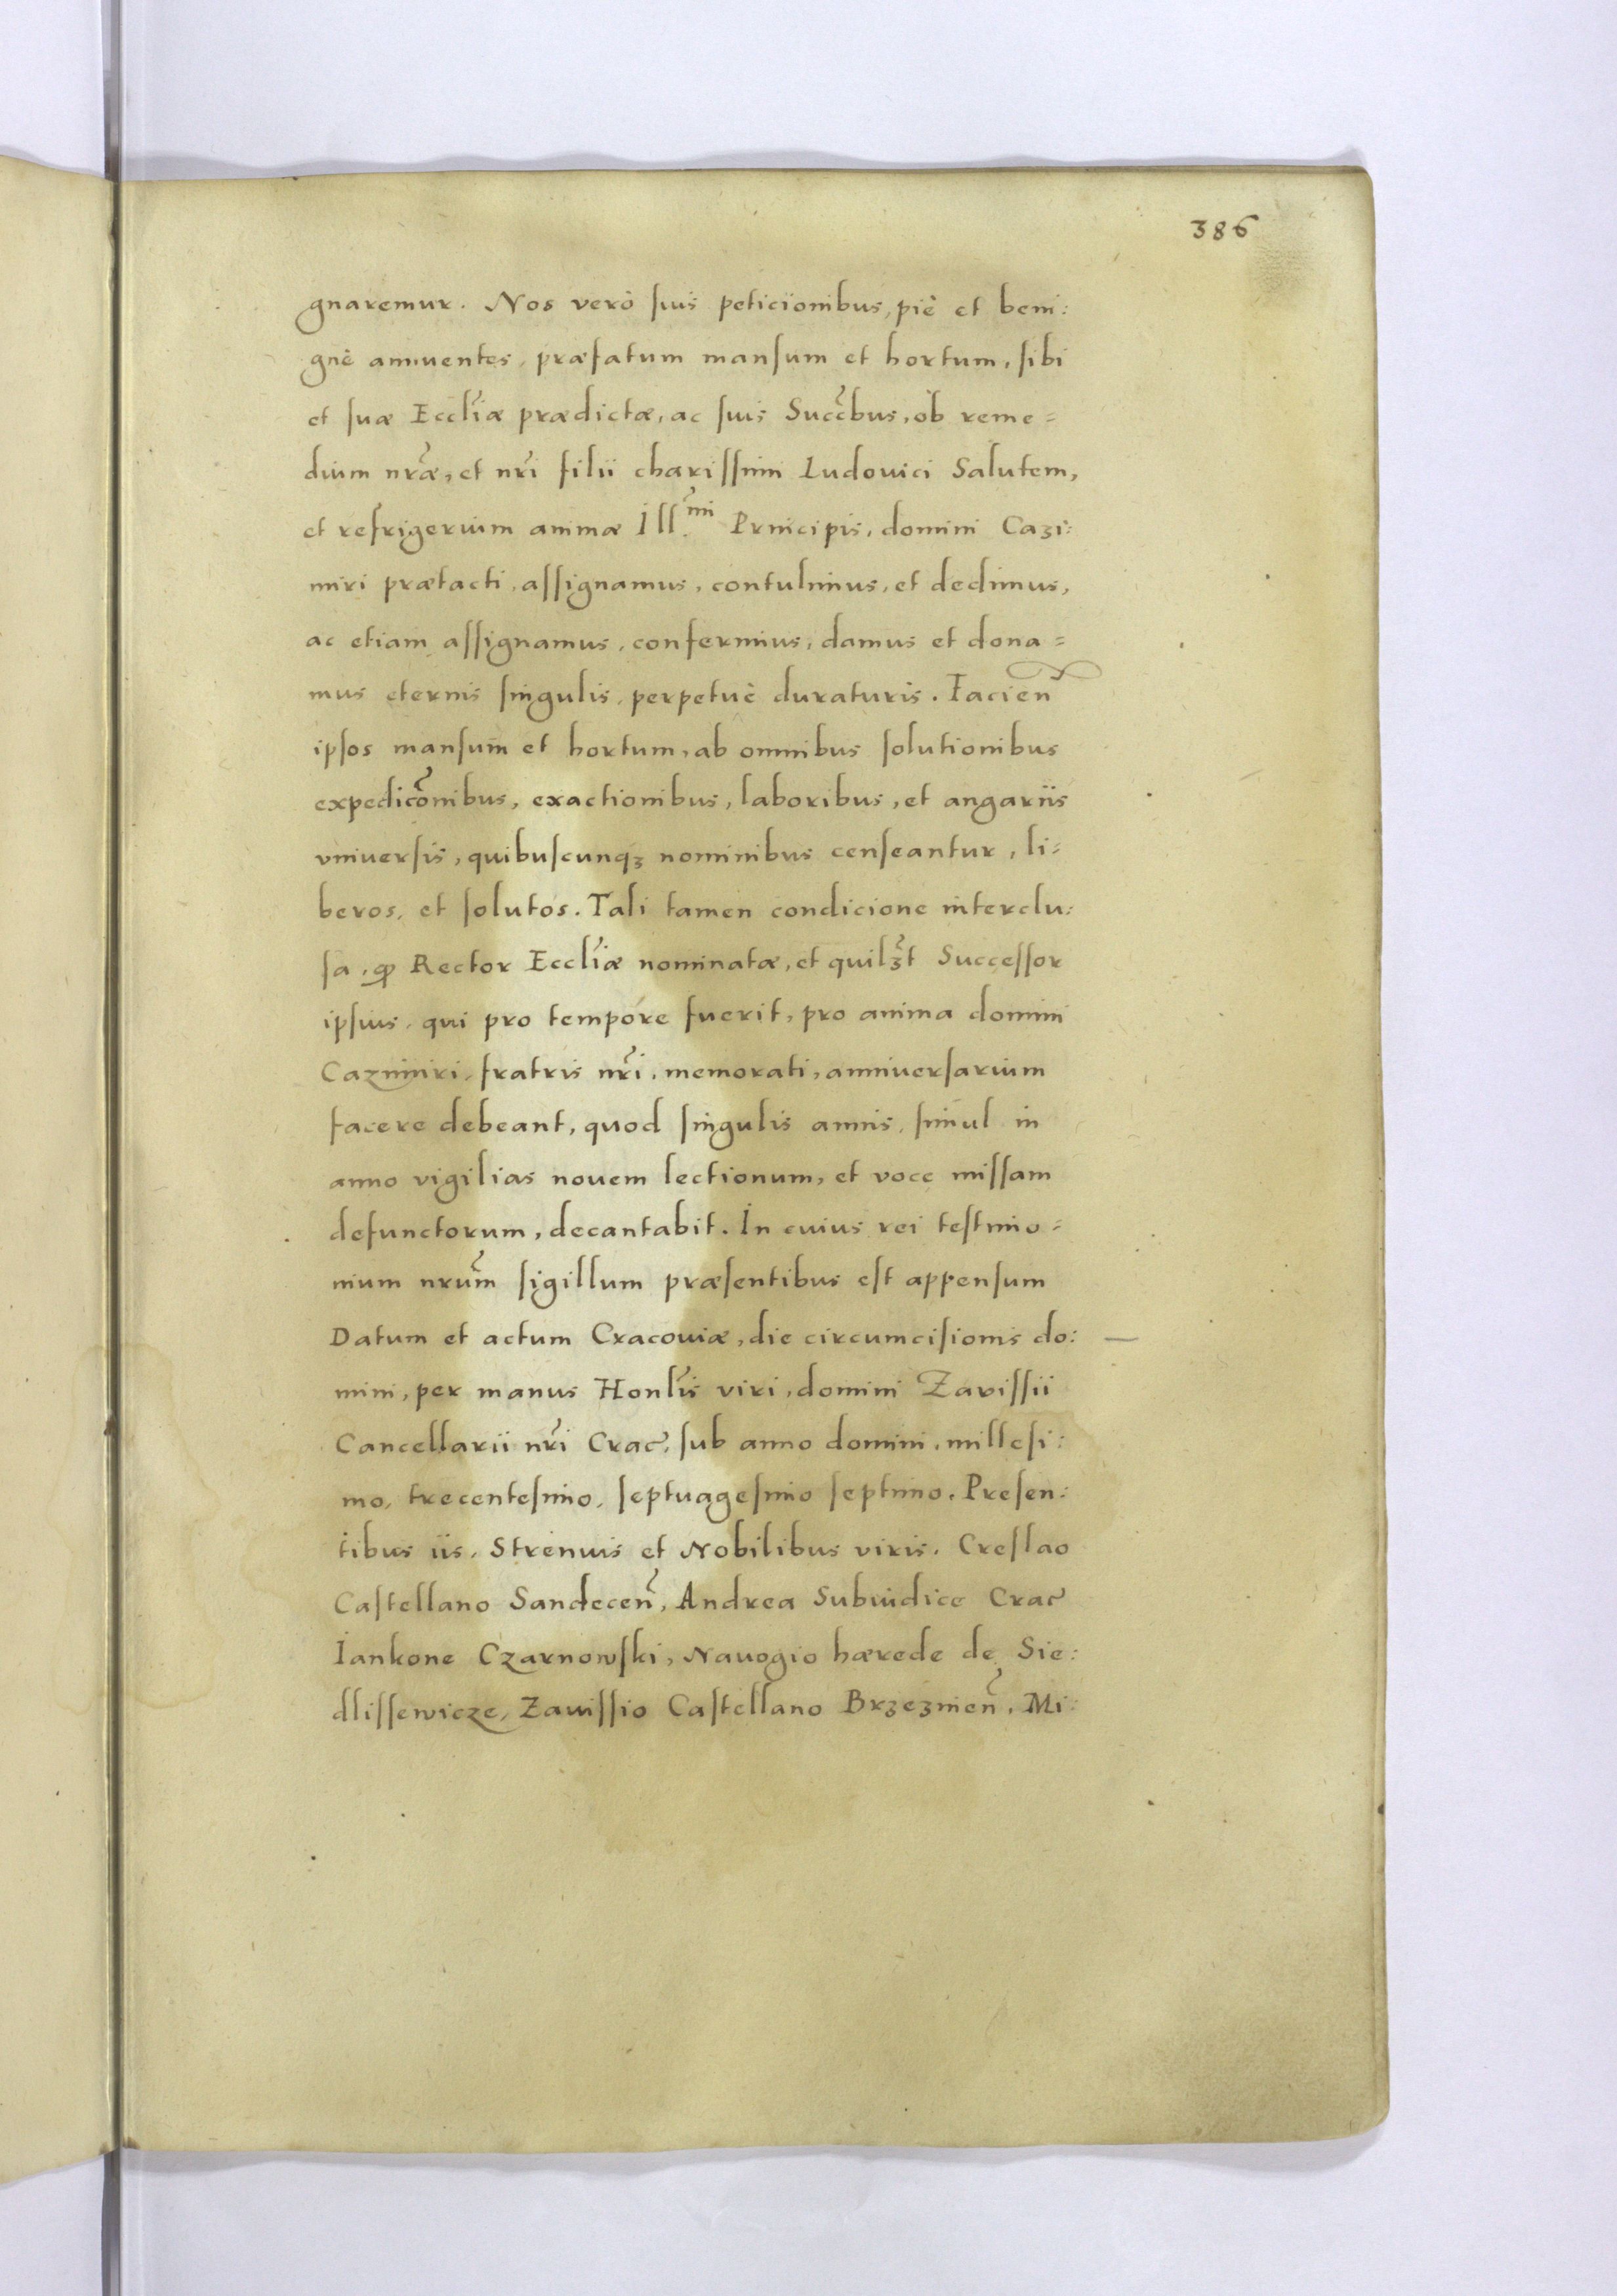 386
gnaremur. Nos verò suis peticionibus, piè et beni:
gnè annuentes, præfatum mansum et hortum, sibi
et suæ Eccl̃iæ prædictæ, ac suis Succ̃bus, ob reme=
dium nr̃æ, et nr̃i filii charissimi Ludovici Salutem,
et refrigerium animæ Ill.mi Principis, domini Cazi:
miri prætacti, assignamus, contulimus, et dedimus,
ac etiam assignamus, conferimus, damus et dona=
mus eternis singulis, perpetuè duraturis. Facien̄
ipsos mansum et hortum, ab omnibus solutionibus
expedic̃onibus, exactionibus, laboribus, et angariis
vniuersis, quibuscunqꝫ nominibus censeantur, li=
beros, et solutos. Tali tamen condicione interclu:
sa, ꝙ Rector Eccl̃iæ nominatæ, et quilꝫt Successor
ipsius, qui pro tempore fuerit, pro anima domini
Cazimiri, fratris nr̃i, memorati, anniuersarium
facere debeant, quod singulis annis, simul in
anno vigilias nouem lectionum, et voce missam
defunctorum, decantabit. In cuius rei testimo=
nium nrũm sigillum præsentibus est appensum
Datum et actum Cracouiæ, die circumcisionis do:
mini, per manus Honl̃is viri, domini Zavissii
Cancellarii nr̃i Crac̃, sub anno domini, millesi:
mo, trecentesimo, septuagesimo septimo. Presen:
tibus iis, Strenuis et Nobilibus viris. Creslao
Castellano Sandeceñ, Andrea Subiudice Crac̃
Iankone Czarnowski, Navogio hærede de Sie:
dlissewicze, Zauissio Castellano Brzezineñ, Mi: